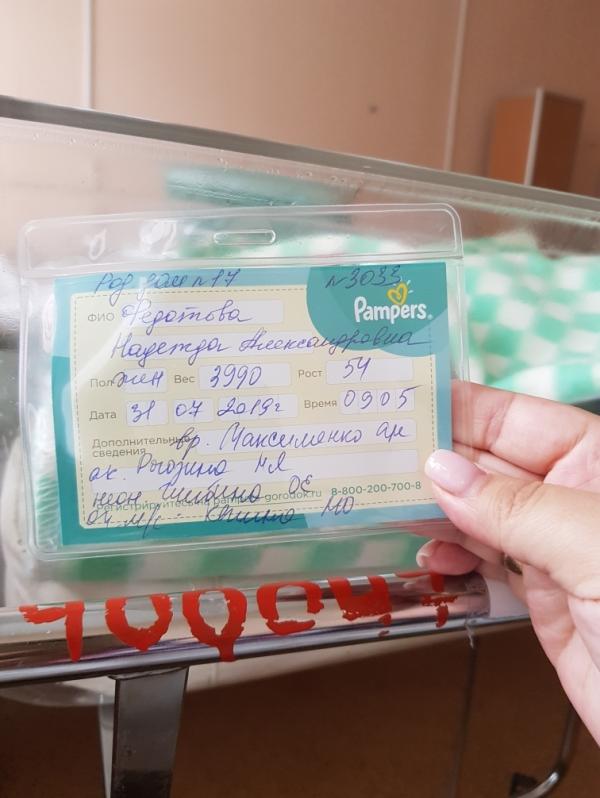 Род дом № 17 № 3033
Pampers®
ФИО Федотова
Надежда Александровна
Пол жен Вес 3990 Рост 54
Дата 31 07 2019г Время 0905
Дополнительные сведения вр. Максименко
ак. Рогозина НЯ
неон Шибина ОЕ
регистрируйтесь на gorodok.ru 8-800-200-700-8
м/с МО